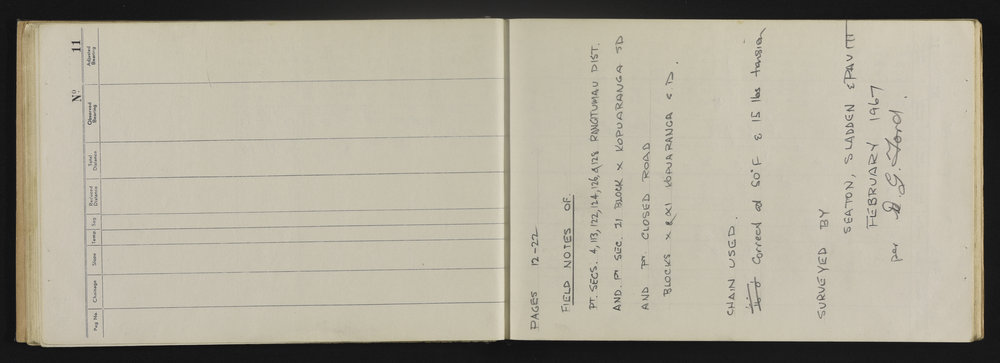 Nº 11
Peg No. Chainage Slope Temp Sag Reduced Distance Total Distance Observed Bearing Adjusted Bearing
PAGES 12-22
FIELD NOTES OF
PT. SECS. 4, 113, 122, 124, 126, & 128 RANGITUMAU DIST.
AND. Pt SEC. 21 BLOCK X KOPUARANGA SD
AND Pt. CLOSED ROAD
BLOCKS X & XI KOPUARANGA S D.
CHAIN USED.
Correct at 50°F & 15 lbs tension
SURVEYED BY
SEATON, SLADDEN & PAVITT
FEBRUARY 1967
per D G. Ford